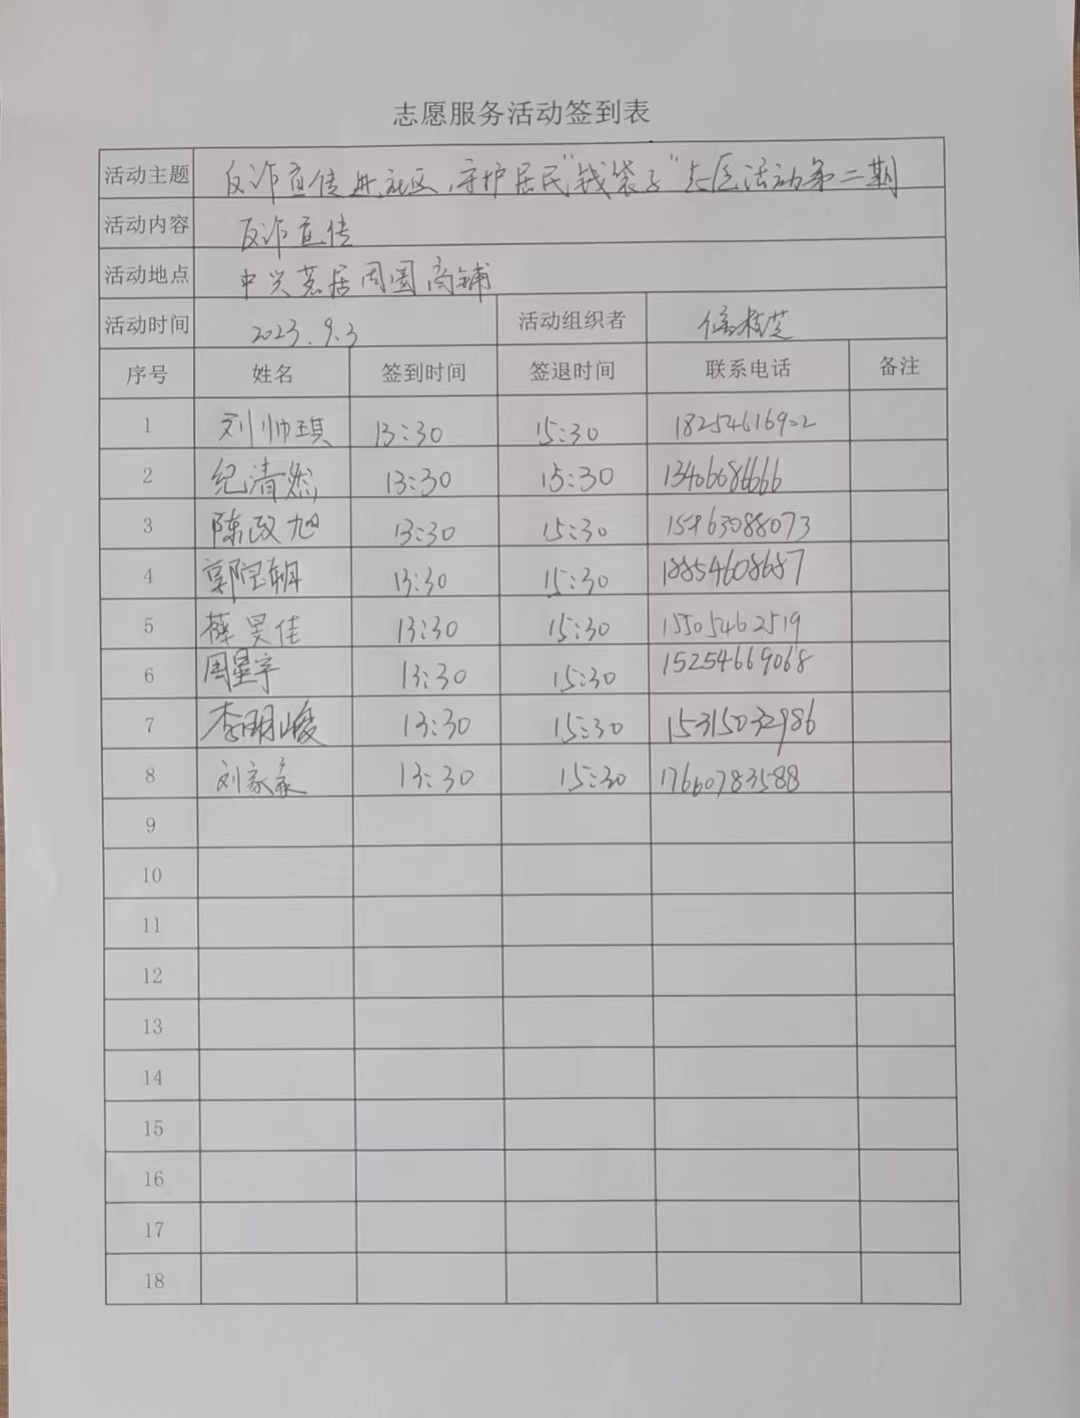 志愿服务活动签到表
活动主题 反诈宣传进社区,守护居民"钱袋子"志愿活动第二期
活动内容 反诈宣传
活动地点 中兴茗居周围商铺
活动时间 2023.9.3 活动组织者 桂芝
序号 姓名 签到时间 签退时间 联系电话 备注
1 刘帅琪 13:30 15:30 18254616902
2 纪清 13:30 15:30
3 陈政旭 13:30 15:30 15963088073
4 郭 13:30 15:30 18854608687
5 薛昊佳 13:30 15:30 15505462519
6 周星宇 13:30 15:30 15254669068
7 李明峻 13:30 15:30 15315032986
8 刘家豪 13:30 15:30 17660783588
9
10
11
12
13
14
15
16
17
18